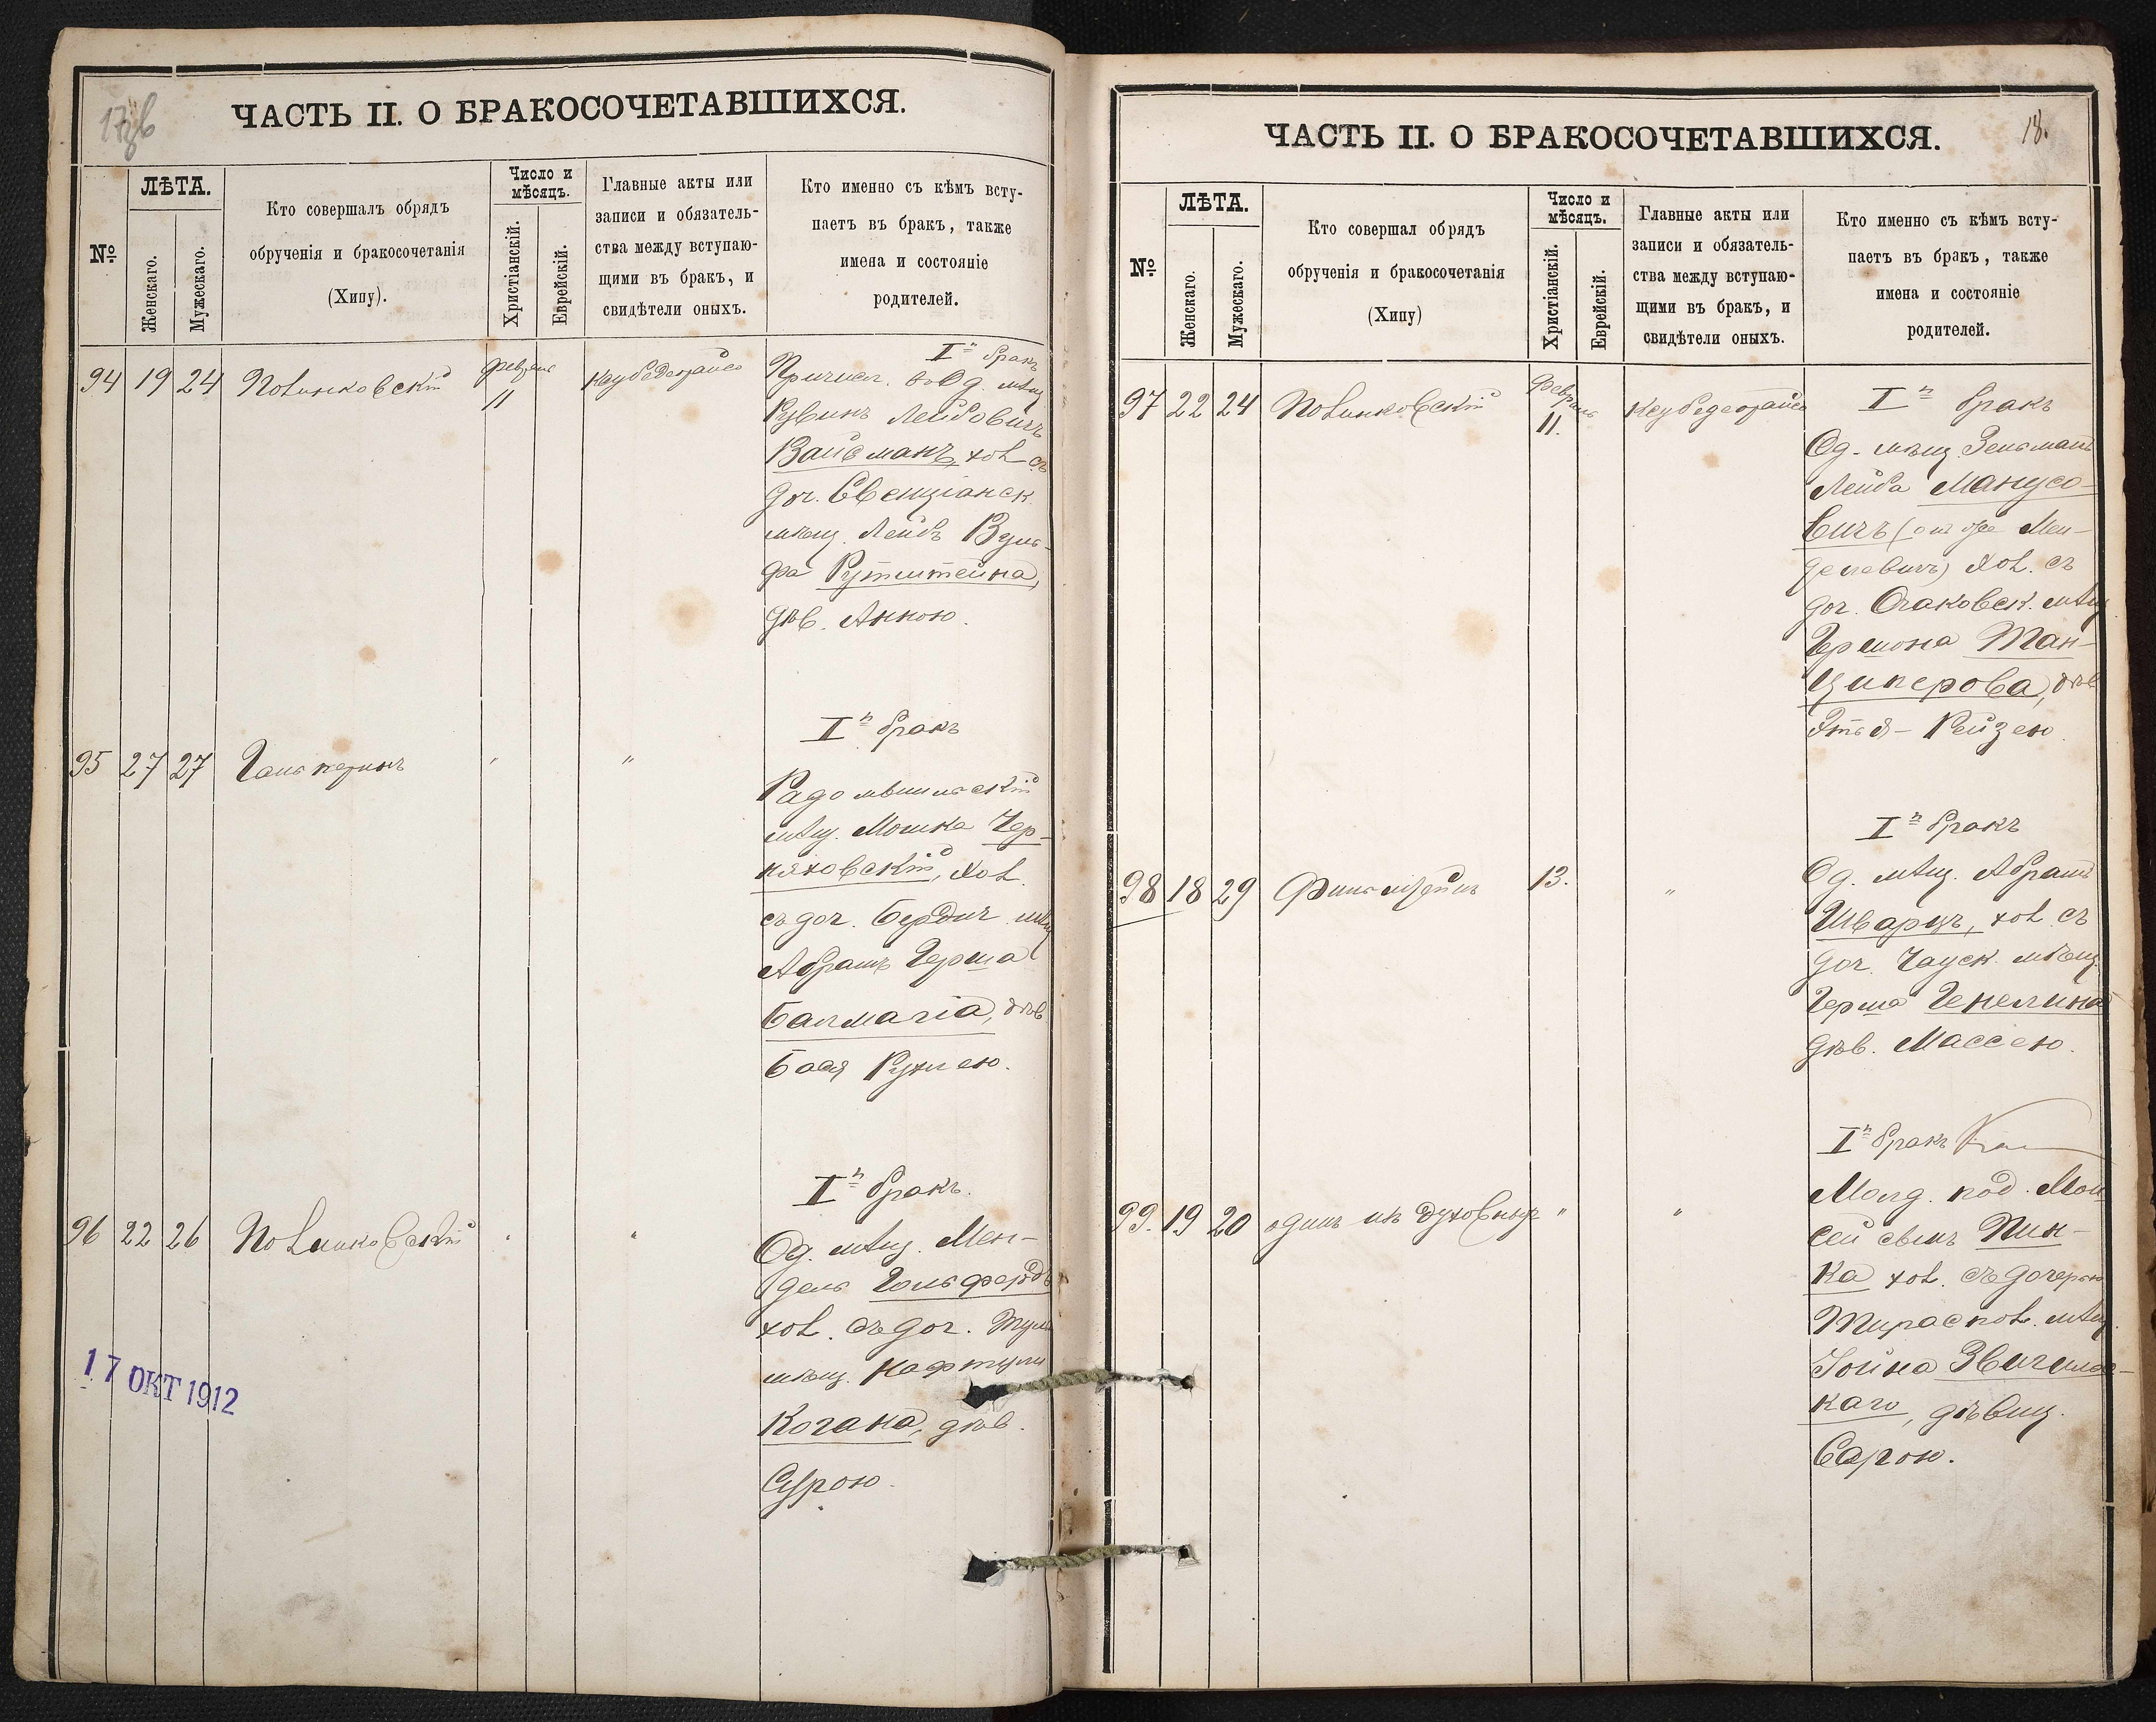 17об
ЧАСТЬ II. О БРАКОСОЧЕТАВШИХСЯ.
№
ЛѢТА.
Женскаго.
Мужескаго.
Кто совершалъ обрядъ
обрученія и бракосочетанія
(Хипу).
Число и
мѣсяцъ.
Христіанскій.
Еврейскій.
Главные акты или
записи и обязатель-
ства между вступаю-
щими въ бракъ, и
свидѣтели оныхъ.
Кто именно съ кѣмъ всту-
паетъ въ бракъ, также
имена и состояніе
родителей.
94 19 24 Полинковскій
11
I й бракъ
Причисл. въ Од. мѣщ
Рувинъ Лейбовичъ
Вайсманъ, хол съ
доч. Свенціанск
мѣщ. Лейбъ Вуль-
фа Рутштейна,
дѣв. Анною.
95 27 27 Гальперинъ " "
I й бракъ
Радомысльскій
мѣщ. Мошка Чер-
няховскій, хол.
съ доч. Бердич. мѣщ
Абрамъ Герша
Балмагія, дѣв
Бася Рухлею.
96 22 26 Полинковскій " "
I й бракъ.
Од. мѣщ. Мен-
дель Гольфельдъ
хол. съ доч. Тульч
мѣщ. Нафтули
Когана, дѣв.
Сурою.
17 ОКТ 1912
18.
ЧАСТЬ II. О БРАКОСОЧЕТАВШИХСЯ.
№
ЛѢТА.
Женскаго.
Мужескаго.
Кто совершал обрядъ
обрученія и бракосочетанія
(Хипу)
Число и
мѣсяцъ.
Христіанскій.
Еврейскій.
Главные акты или
записи и обязатель-
ства между вступаю-
щими въ бракъ, и
свидѣтели оныхъ.
Кто именно съ кѣмъ всту-
паетъ въ бракъ, также
имена и состояніе
родителей.
97 22 24 Полинковскій Февраль
11.
I й бракъ
Од. мѣщ. Зельманъ
Лейба Манусо-
вичъ (онъ же Мен-
делевичъ) хол. съ
доч. Очаковск. мѣщ
Гершона Тан-
циперова, дѣв
Этья-Рейзею
98 18 29 13. "
I й бракъ
Од. мѣщ. Абрамъ
Шварцъ, хол съ
доч. Чауск. мѣщ.
Герша Генелина
дѣв. Массею.
99. 19 20 одинъ изъ духовныхъ " "
I й бракъ
Молд. под. Мои
сей сынъ Пин-
ка хол. съ дочерью
Тираспол. мѣщ.
Іойна Звигиль-
каго, дѣвиц.
Сарою.